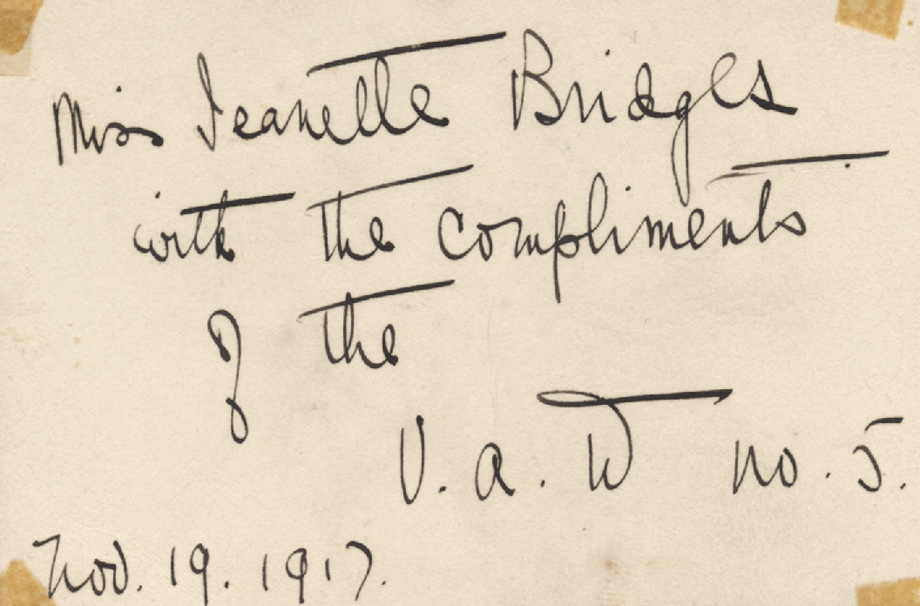 Miss Jeanette Bridges
with the compliments
of the
V. a. W no. 5.
Nov. 19. 1917.